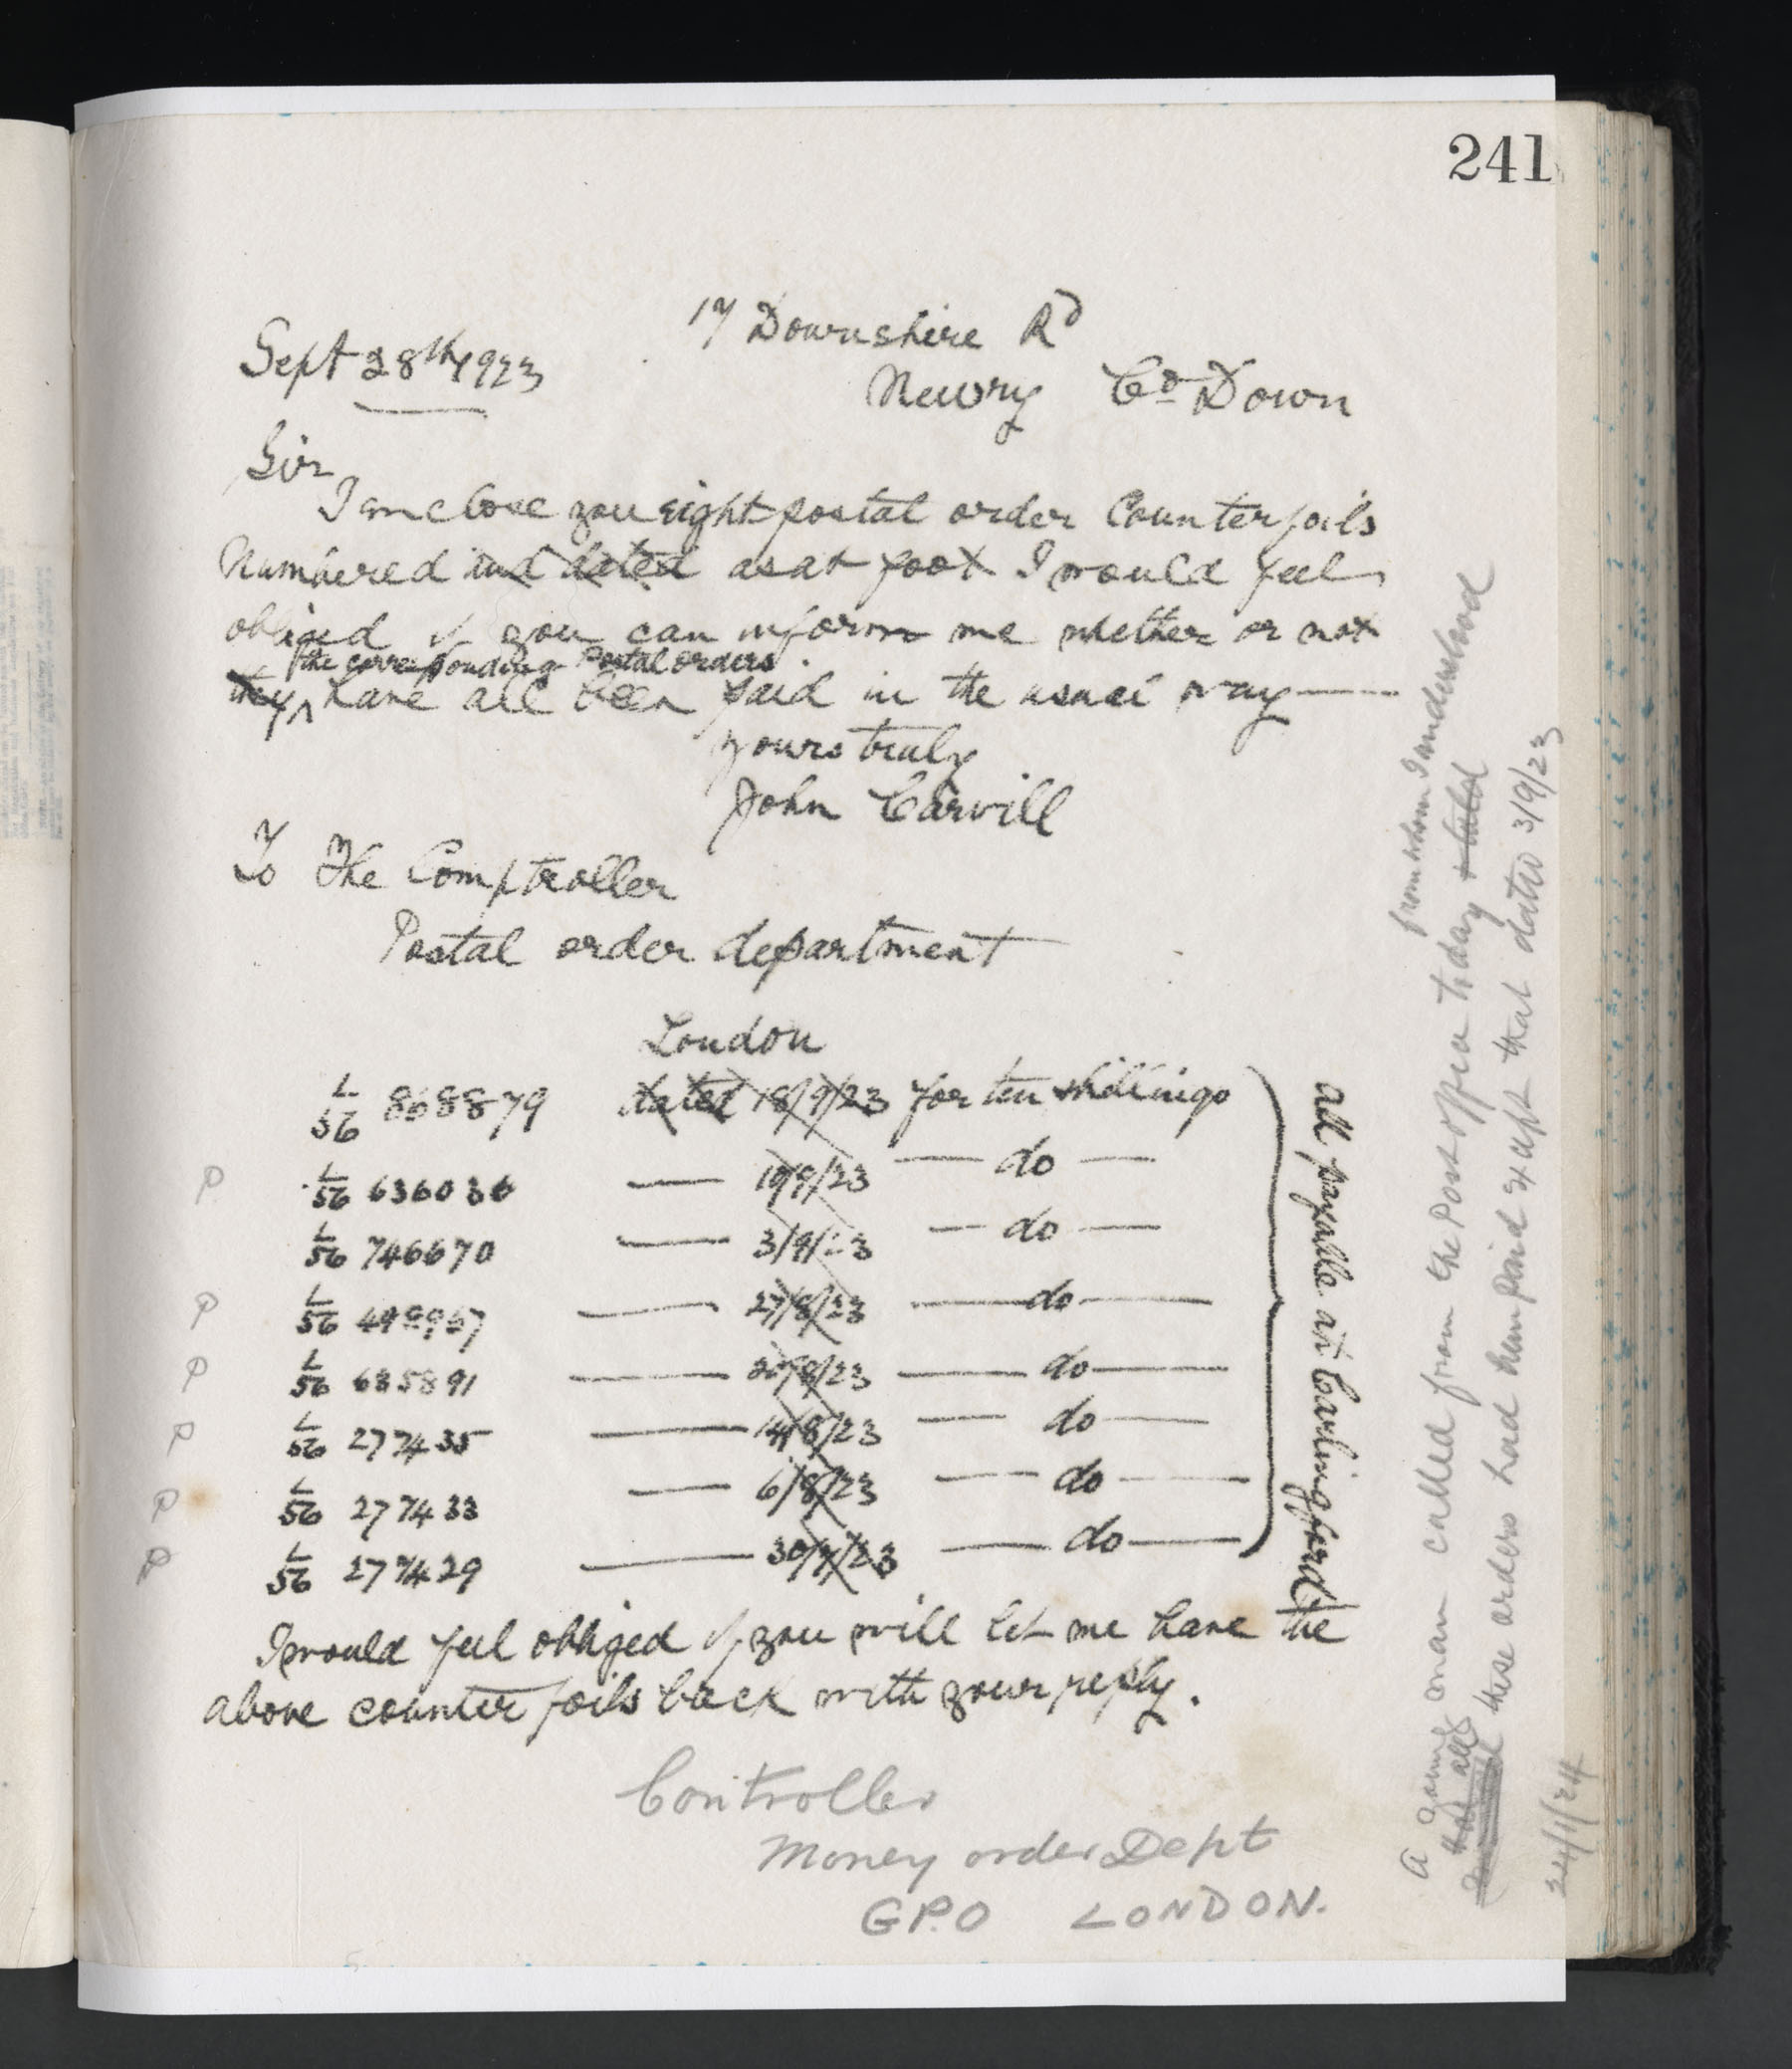 241
17 Downshire Rd
Sept 28th/1923
Newry Co Down
Sir
I enclose you eight postal order Counterfoils
Numbered and dated as at foot I would feel
obliged if you can inform me whether or not
the corresponding Postal orders
they ^ have all been paid in the usual way
yours truly
John Carvill
To The Comptroller
Postal order department
London
L/56 868879 dated 18/9/23 for ten shillings
P L/56 636036 — 10/9/23 — do —
L/56 746670 — 3/9/23 — do —
P L/56 498967 — 27/8/23 — do —
P L/56 685891 — 20/8/23 — do —
P L/56 277435 — 14/8/23 — do —
P L/56 277433 — 6/8/23 — do —
P L/56 277429 — 30/7/23 — do —
all payable at Carlingford
I would feel obliged if you will let me have the
above counterfoils back with your reply.
Controller
Money order Dept
G.P.O LONDON.
from whom I understood
A young man called from the Post office to day + told
that all
these orders had been paid except that dated 3/9/23
24/1/24